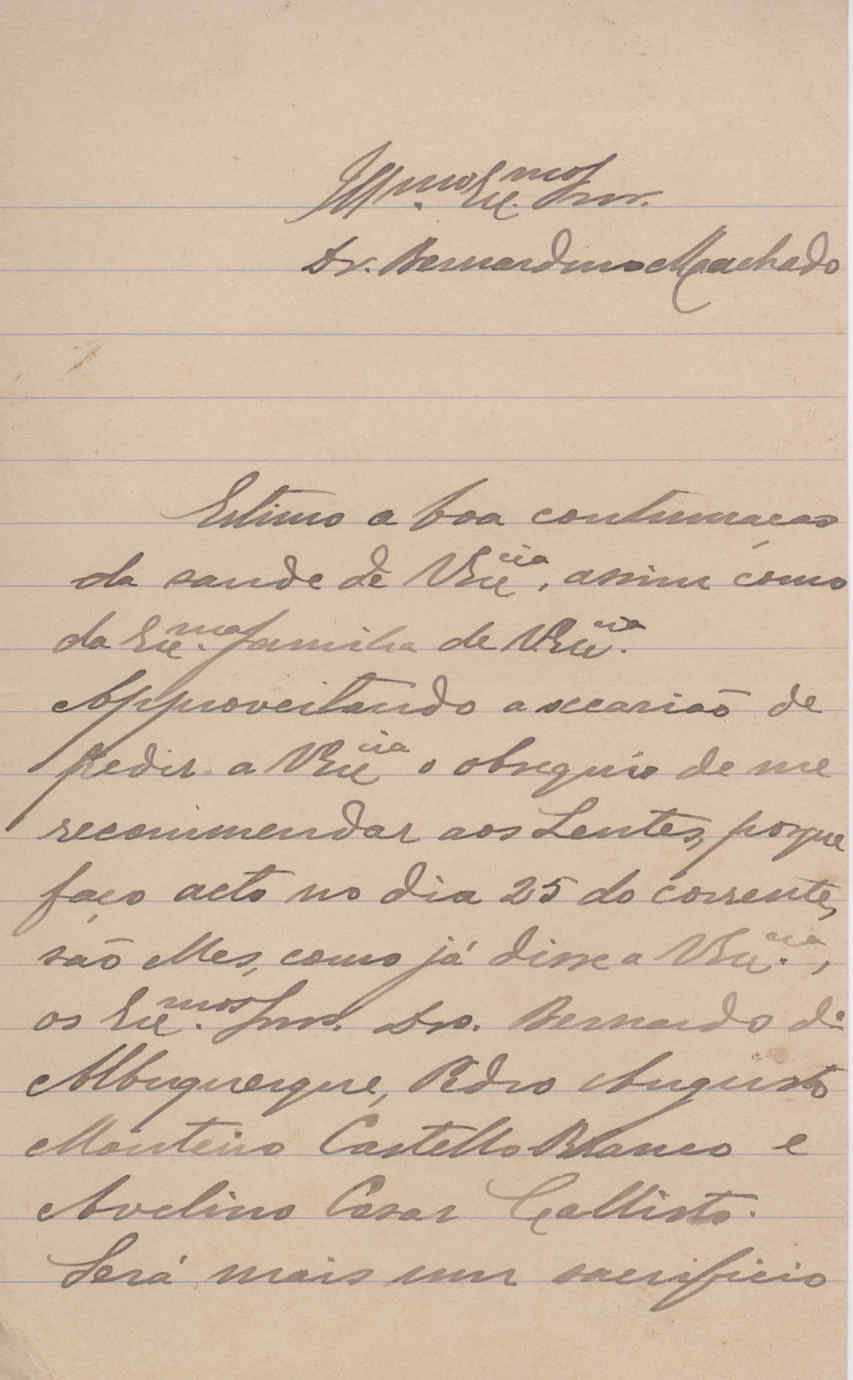 Illmo. Exc.mo Snr.
Dr. Bernardino Machado
Estimo a boa continuação
da saude de VExcia, assim como
da Exc.ma familia de VExcia.
Approveitando a occasião de
pedir a VExcia o obsequio de me
recommendar aos Lentes, porque
faço acto no dia 25 do corrente,
são elles, como já disse a VExc.cia,
os Exc.mos Snrs. Drs. Bernardo d'
Albuquerque, Pedro Augusto
Monteiro Castello Branco e
Avelino Cesar Callisto.
Será mais um sacrificio